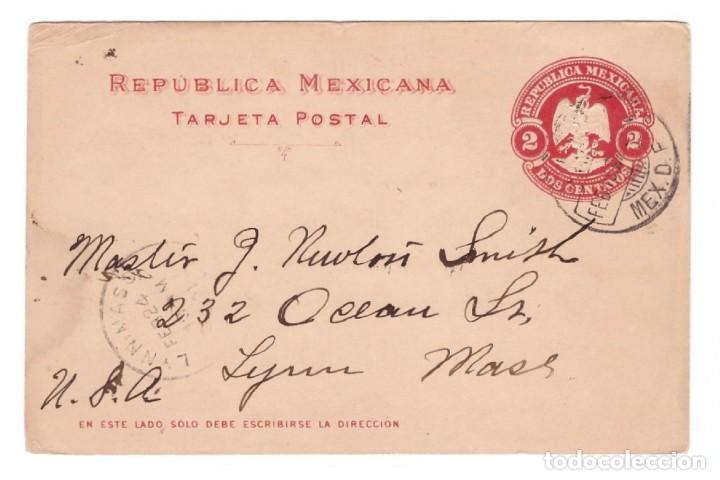 REPÚBLICA MEXICANA
TARJETA POSTAL
REPUBLICA MEXICANA
2 2
DOS CENTAVOS
FEB
MEX. D. F
Master J. Newton Smith
232 Ocean St.
Lynn Mass
U.S.A.
LYNN MASS
FEB 24
M
EN ESTE LADO SÓLO DEBE ESCRIBIRSE LA DIRECCIÓN
todocoleccion